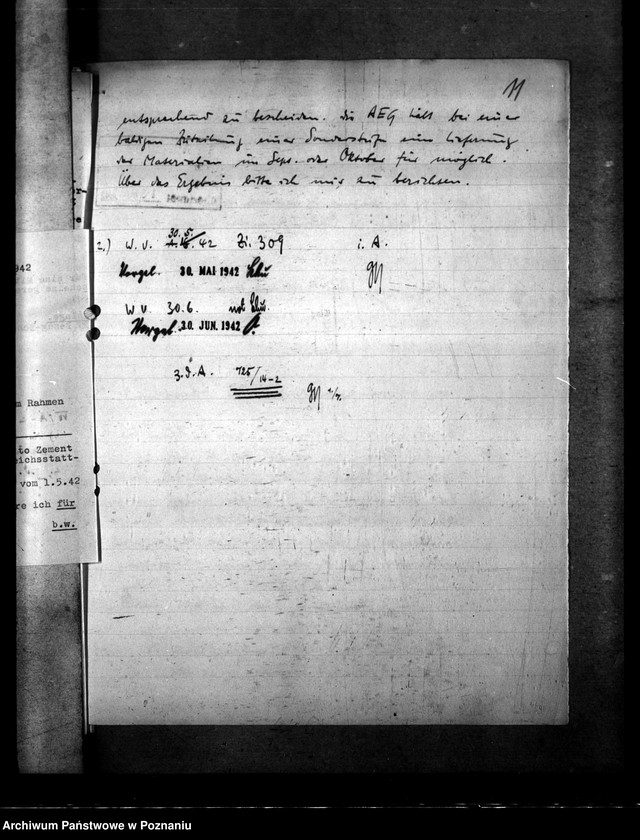 11
entsprechend zu bescheiden. Die AEG hält bei einer
baldigen Zuteilung einer Sonderstufe eine Lieferung
der Materialien im Sept. oder Oktober für möglich.
Über das Ergebnis bitte ich mir zu berichten.
2.) W. V. 30. 5. 42 Zi. 309 i. A.
Vorgel. 30. MAI 1942
W V. 30.6.
Vorgel. 20. JUN. 1942
z. d. A. 725/14-2
942
m Rahmen
to Zement
eichsstatt-
vom 1.5.42
re ich für
b.w.
Archiwum Państwowe w Poznaniu